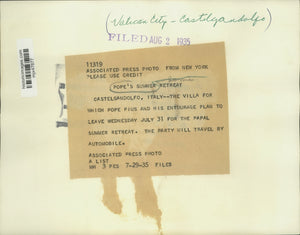 (Vatican City - Castelgandolfo)
FILED AUG 2 1935
11319
ASSOCIATED PRESS PHOTO FROM NEW YORK
PLEASE USE CREDIT
POPE'S SUMMER RETREAT
CASTELGANDOLFO, ITALY--THE VILLA FOR
WHICH POPE PIUS AND HIS ENTOURAGE PLAN TO
LEAVE WEDNESDAY JULY 31 FOR THE PAPAL
SUMMER RETREAT. THE PARTY WILL TRAVEL BY
AUTOMOBILE.
ASSOCIATED PRESS PHOTO
A LIST
3 FES 7-29-35 FILED